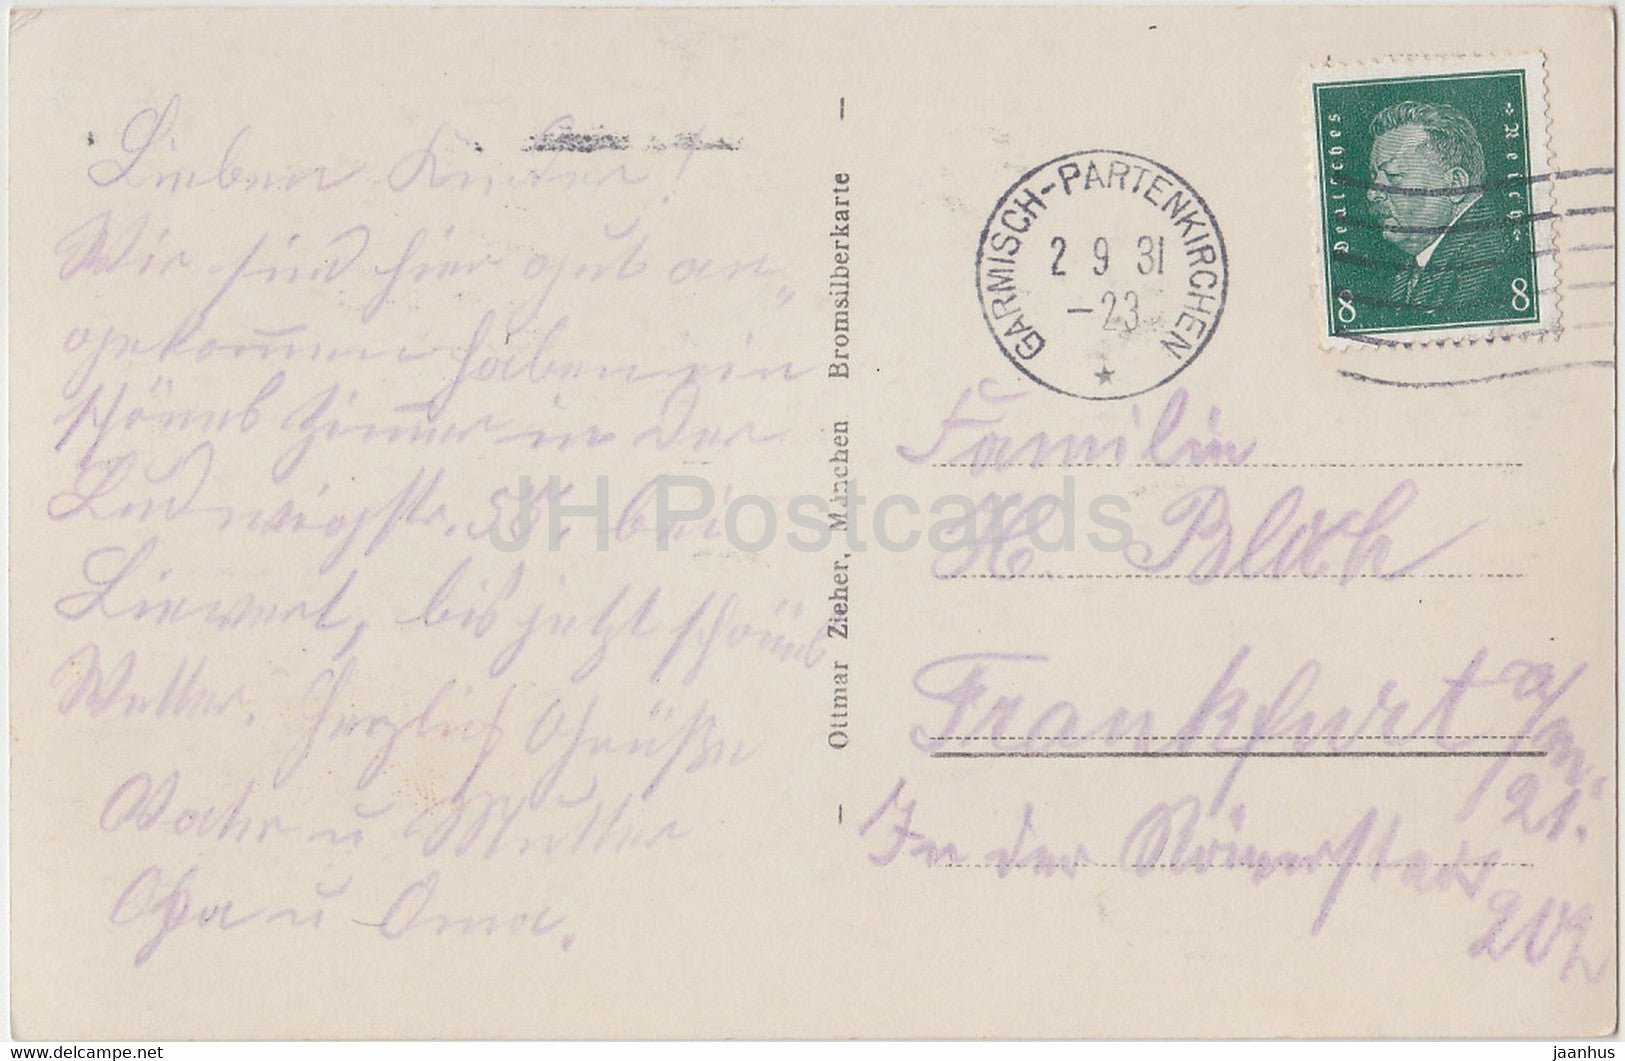 Lieben Kinder!
Wir sind hier gut an-
gekom̅en haben ein
schönes Zim̅er in der
Ludwigstr. 55. bei
Lievert, bis jetzt schönes
Wetter. Herzlich Grüße
Vater u Mutter
Opa u Oma.
- Ottmar Zieher, München Bromsilberkarte -
GARMISCH-PARTENKIRCHEN
2 9 31
-23
Deutsches Reich
8 8
Familie
H. Bloch
Frankfurt a/m.
21.
In der Römerstadt
202
JH Postcards
www.delcampe.net
jaanhus